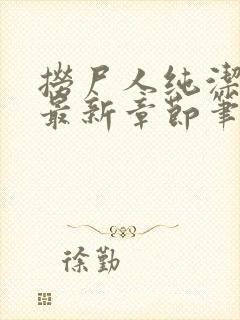 撈尸人纯潔
最新章節筆
徐勤